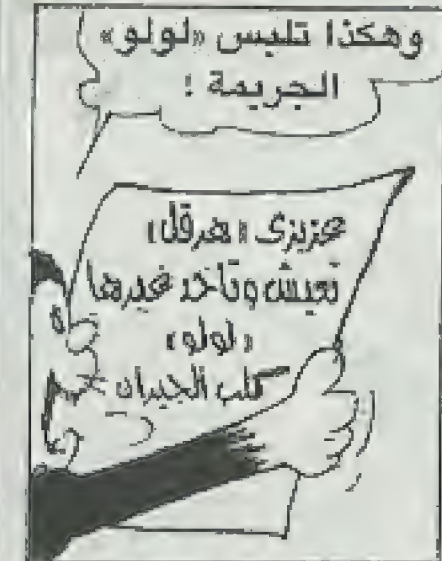 وهكذا تلبس «لولو»
الجريمة !
عزيزى «هرقل»
تعيش وتاخد غيرها
«لولو»
كلب الجيران